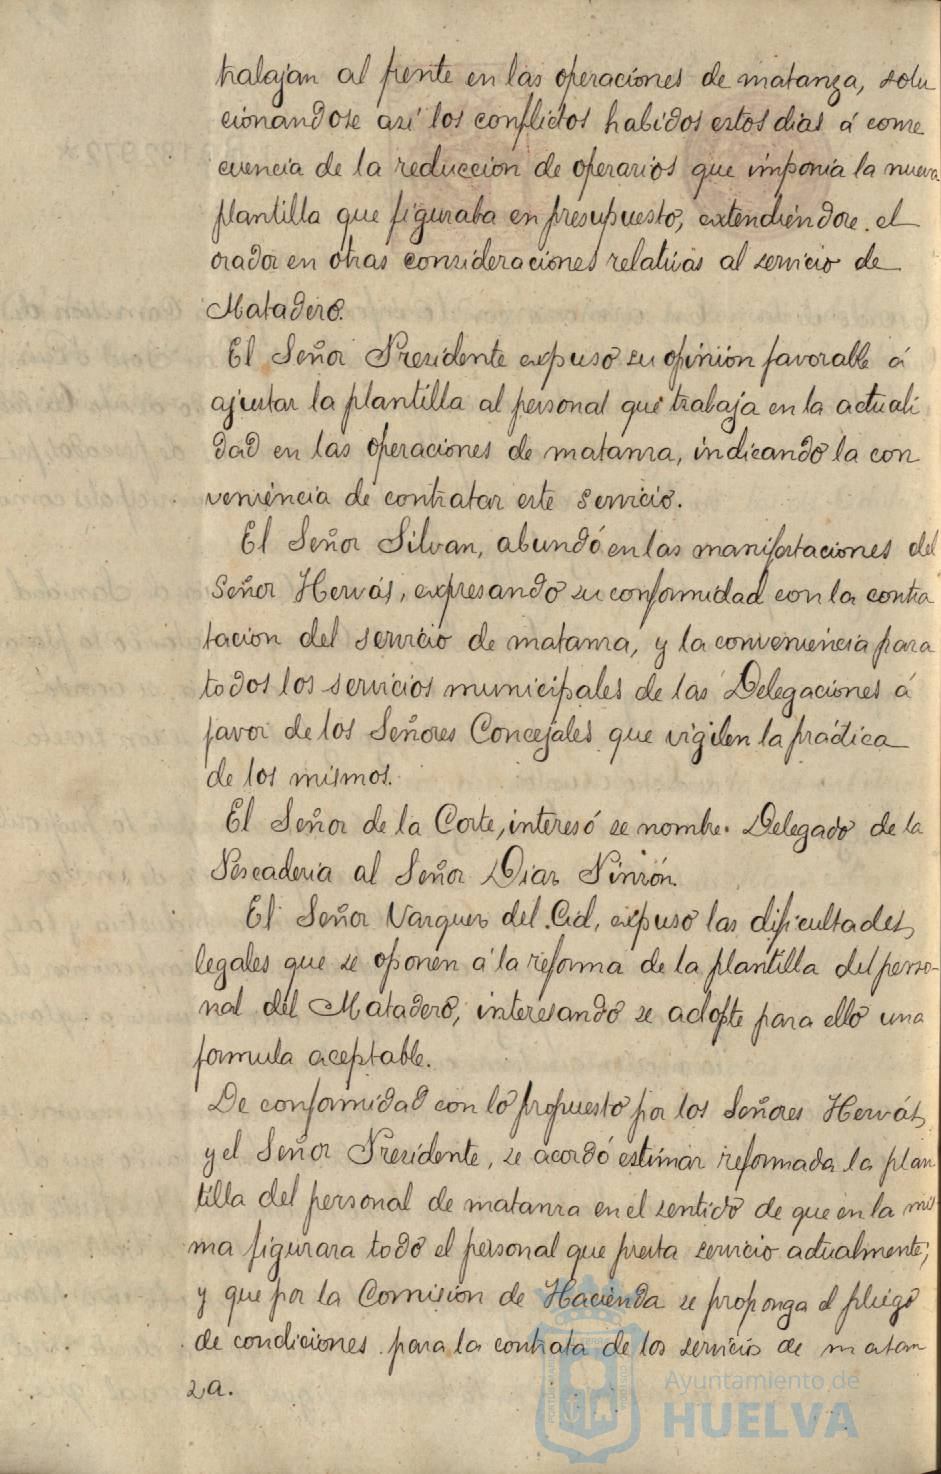 trabajan al frente en las operaciones de matanza, solu
cionandose asi los conflictos habidos estos dias á conse
cuencia de la reduccion de operarios que imponia la nueva
plantilla que figuraba en presupuesto, extendiéndose el
orador en otras consideraciones relativas al servicio de
Matadero.
El Señor Presidente expuso su opinión favorable á
ajustar la plantilla al personal que trabaja en la actuali
dad en las operaciones de matanza, indicando la con
veniencia de contratar este servicio.
El Señor Silvan, abundó en las manifestaciones del
Señor Hervás, expresando su conformidad con la contra
tacion del servicio de matanza, y la conveniencia para
todos los servicios municipales de las Delegaciones á
favor de los Señores Concejales que vigilen la práctica
de los mismos.
El Señor de la Corte, interesó se nombre Delegado de la
Pescaderia al Señor Diaz Pinzón.
El Señor Vazquez del Cid, expuso las dificultades
legales que se oponen á la reforma de la plantilla del perso-
nal del Matadero, interesando se adopte para ello una
formula aceptable.
De conformidad con lo propuesto por los Señores Hervás
y el Señor Presidente, se acordó estimar reformada la plan
tilla del personal de matanza en el sentido de que en la mis
ma figurara todo el personal que presta servicio actualmente;
y que por la Comision de Hacienda se proponga el pliego
de condiciones para la contrata de los servicios de matan
za.
Ayuntamiento de
HUELVA